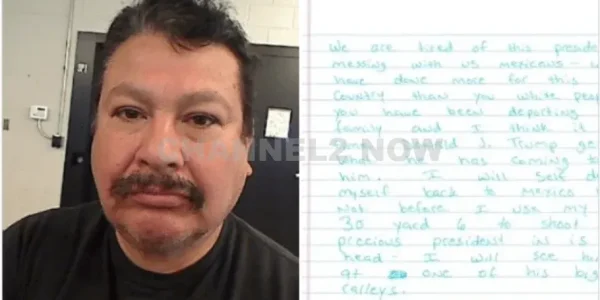 We are tired of this preside
messing with us mexicans - w
have done more for this
Country than you white peop
you have been deporting
family and I think it
J. Trump ge
what he has coming to
him. I will self de
myself back to mexico
Not before I use my
30 yard 6 to shoot
precious president in is
head - I will see hi
at one of his big
ralleys.
CHANNEL2 NOW